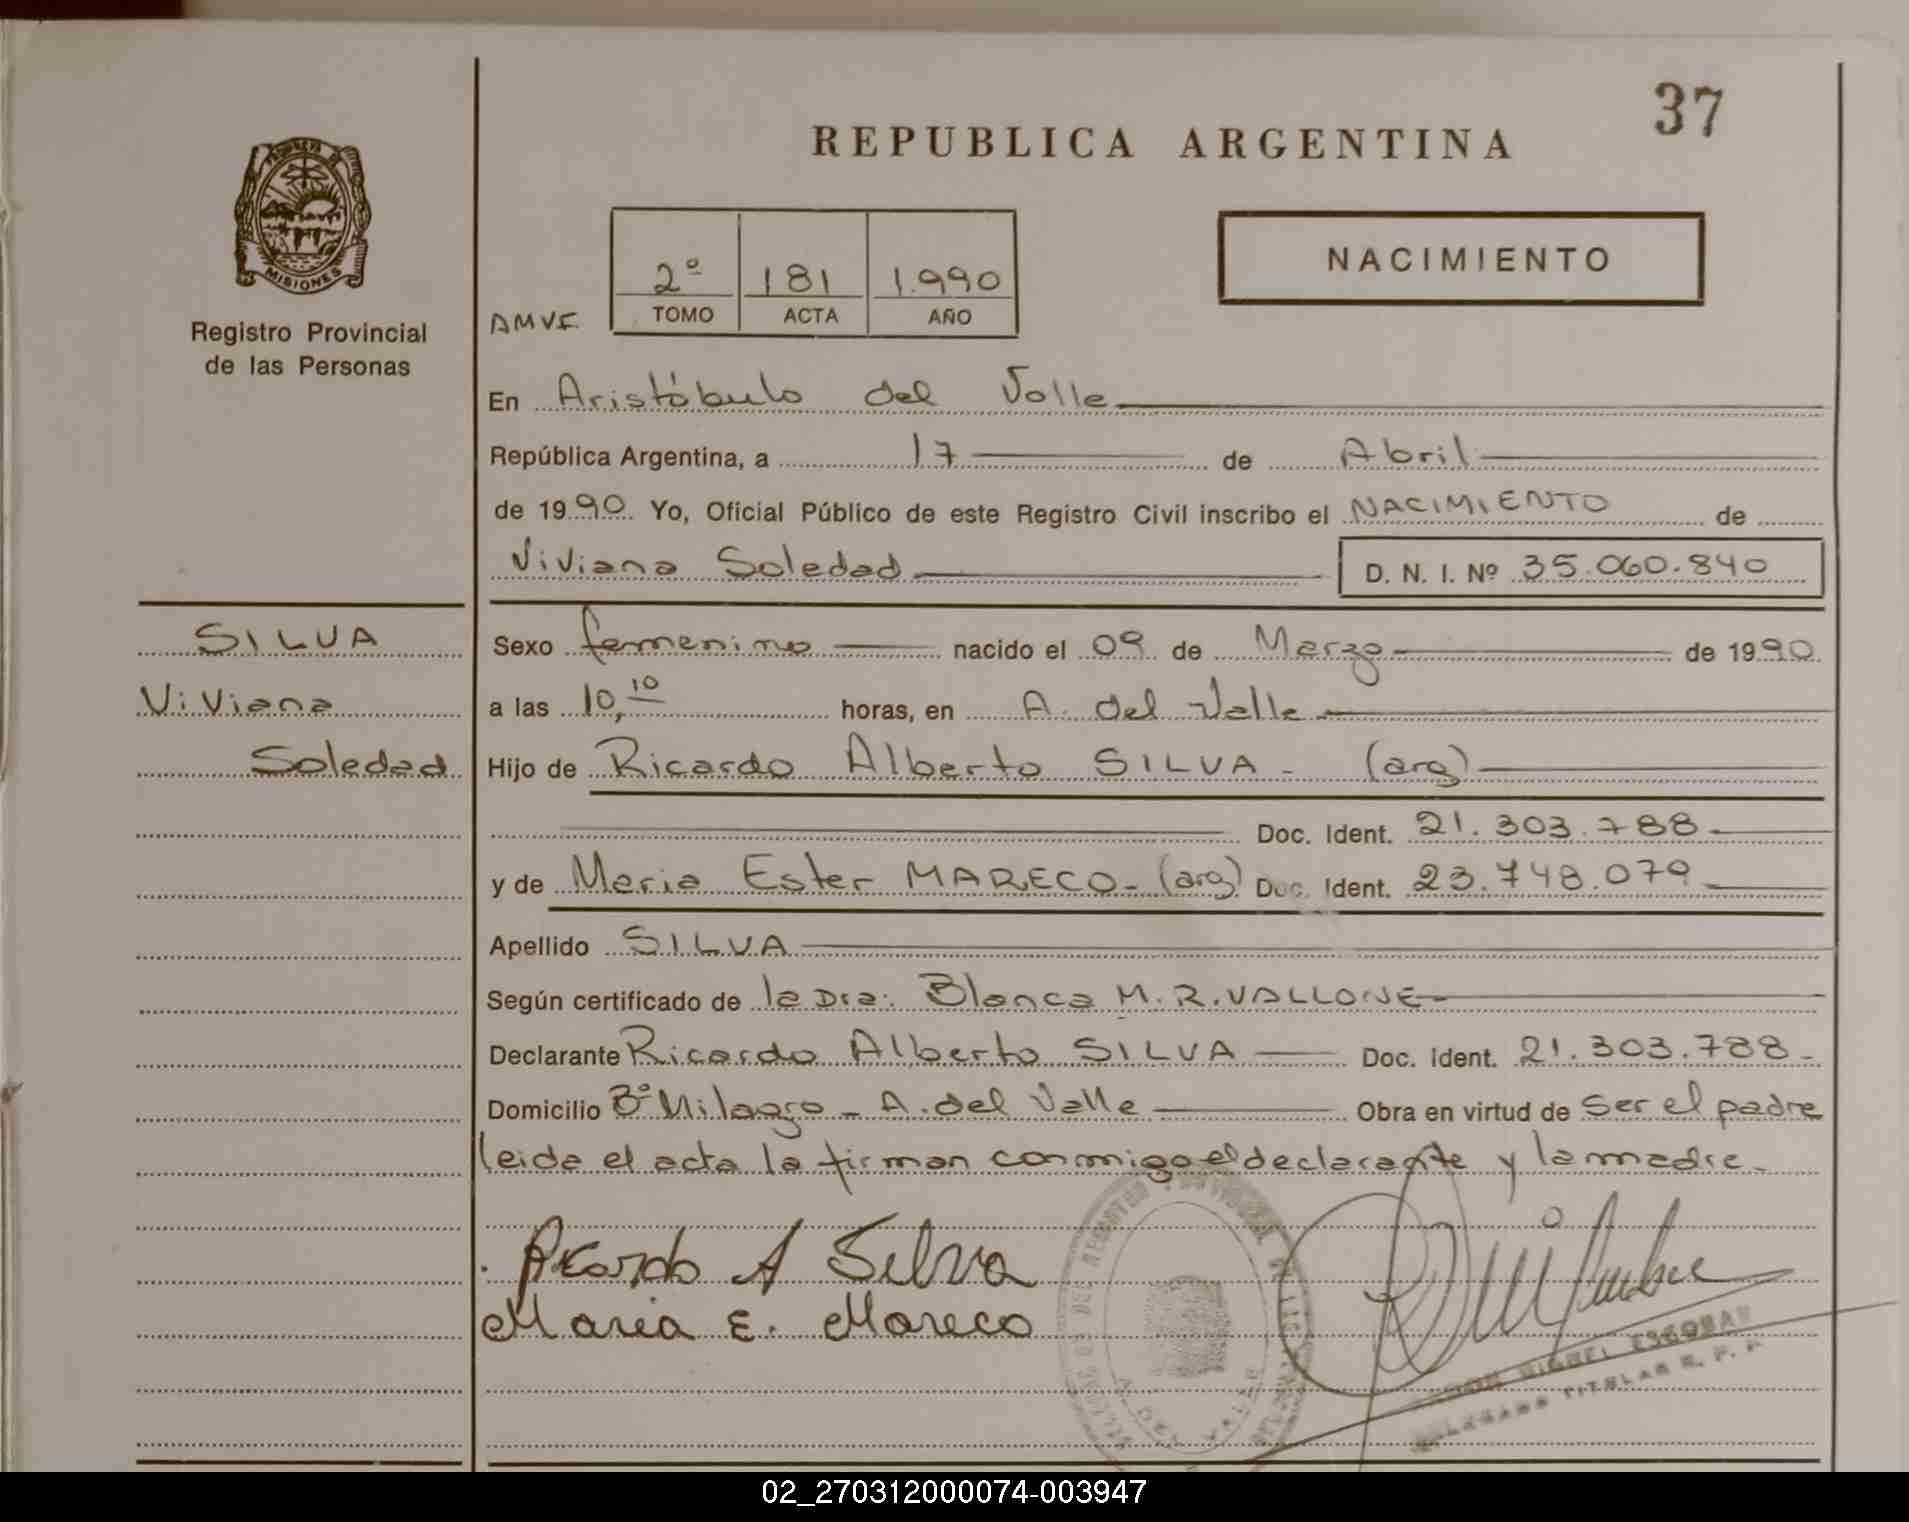 37
REPUBLICA ARGENTINA
PROVINCIA DE
MISIONES
Registro Provincial
de las Personas
2º 181 1.990
TOMO ACTA AÑO
NACIMIENTO
AMVE
En Aristóbulo del Valle
República Argentina, a 17 de Abril
de 1990 Yo, Oficial Público de este Registro Civil inscribo el NACIMIENTO de
Viviana Soledad D. N. I. Nº 35.060.840
SILVA
Viviana
Soledad
Sexo femenino nacido el 09 de Marzo de 1990
a las 10,10 horas, en A. del Valle
Hijo de Ricardo Alberto SILVA - (arg)
Doc. Ident. 21.303.788
y de Maria Ester MARECO - (arg) Doc. Ident. 23.748.079
Apellido SILVA
Según certificado de la Dra: Blanca M. R. VALLONE
Declarante Ricardo Alberto SILVA Doc. Ident. 21.303.788
Domicilio Bº Milagro - A. del Valle Obra en virtud de ser el padre
leida el acta la firman conmigo el declarante y la madre.
Ricardo A Silva
Maria E. Mareco
MIGUEL ESCOBAR
TITULAR R. P. P.
A. DEL VALLE
02_270312000074-003947